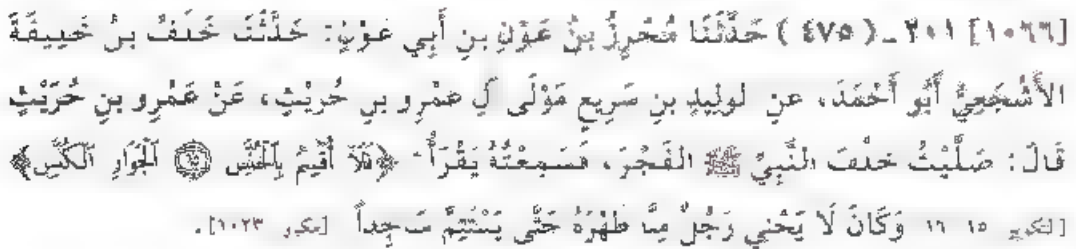 [١٠٦٦] ٢٠١ ـ (٤٧٥) حَدَّثَنَا مُحْرِزُ بنُ عَوْنِ بنِ أَبِي عَوْنٍ: حَدَّثَنَا خَلَفُ بنُ خَلِيفَةَ
الأَشْجَعِيُّ أَبُو أَحْمَدَ، عن الوليدِ بنِ سَرِيعٍ مَوْلَى آلِ عَمْرِو بنِ حُرَيْثٍ، عَنْ عَمْرِو بنِ حُرَيْثٍ
قَالَ: صَلَّيْتُ خَلْفَ النَّبِيِّ ﷺ الفَجْرَ، فَسَمِعْتُهُ يَقْرَأُ: ﴿فَلَآ أُقْسِمُ بِٱلْخُنَّسِ ۝١٥ ٱلْجَوَارِ ٱلْكُنَّسِ﴾
[التكوير ١٥ ١٦ وَكَانَ لَا يَحْني رَجُلٌ مِنَّا ظَهْرَهُ حَتَّى يَسْتَتِمَّ سَاجِداً [مكرر ١٠٢٣].